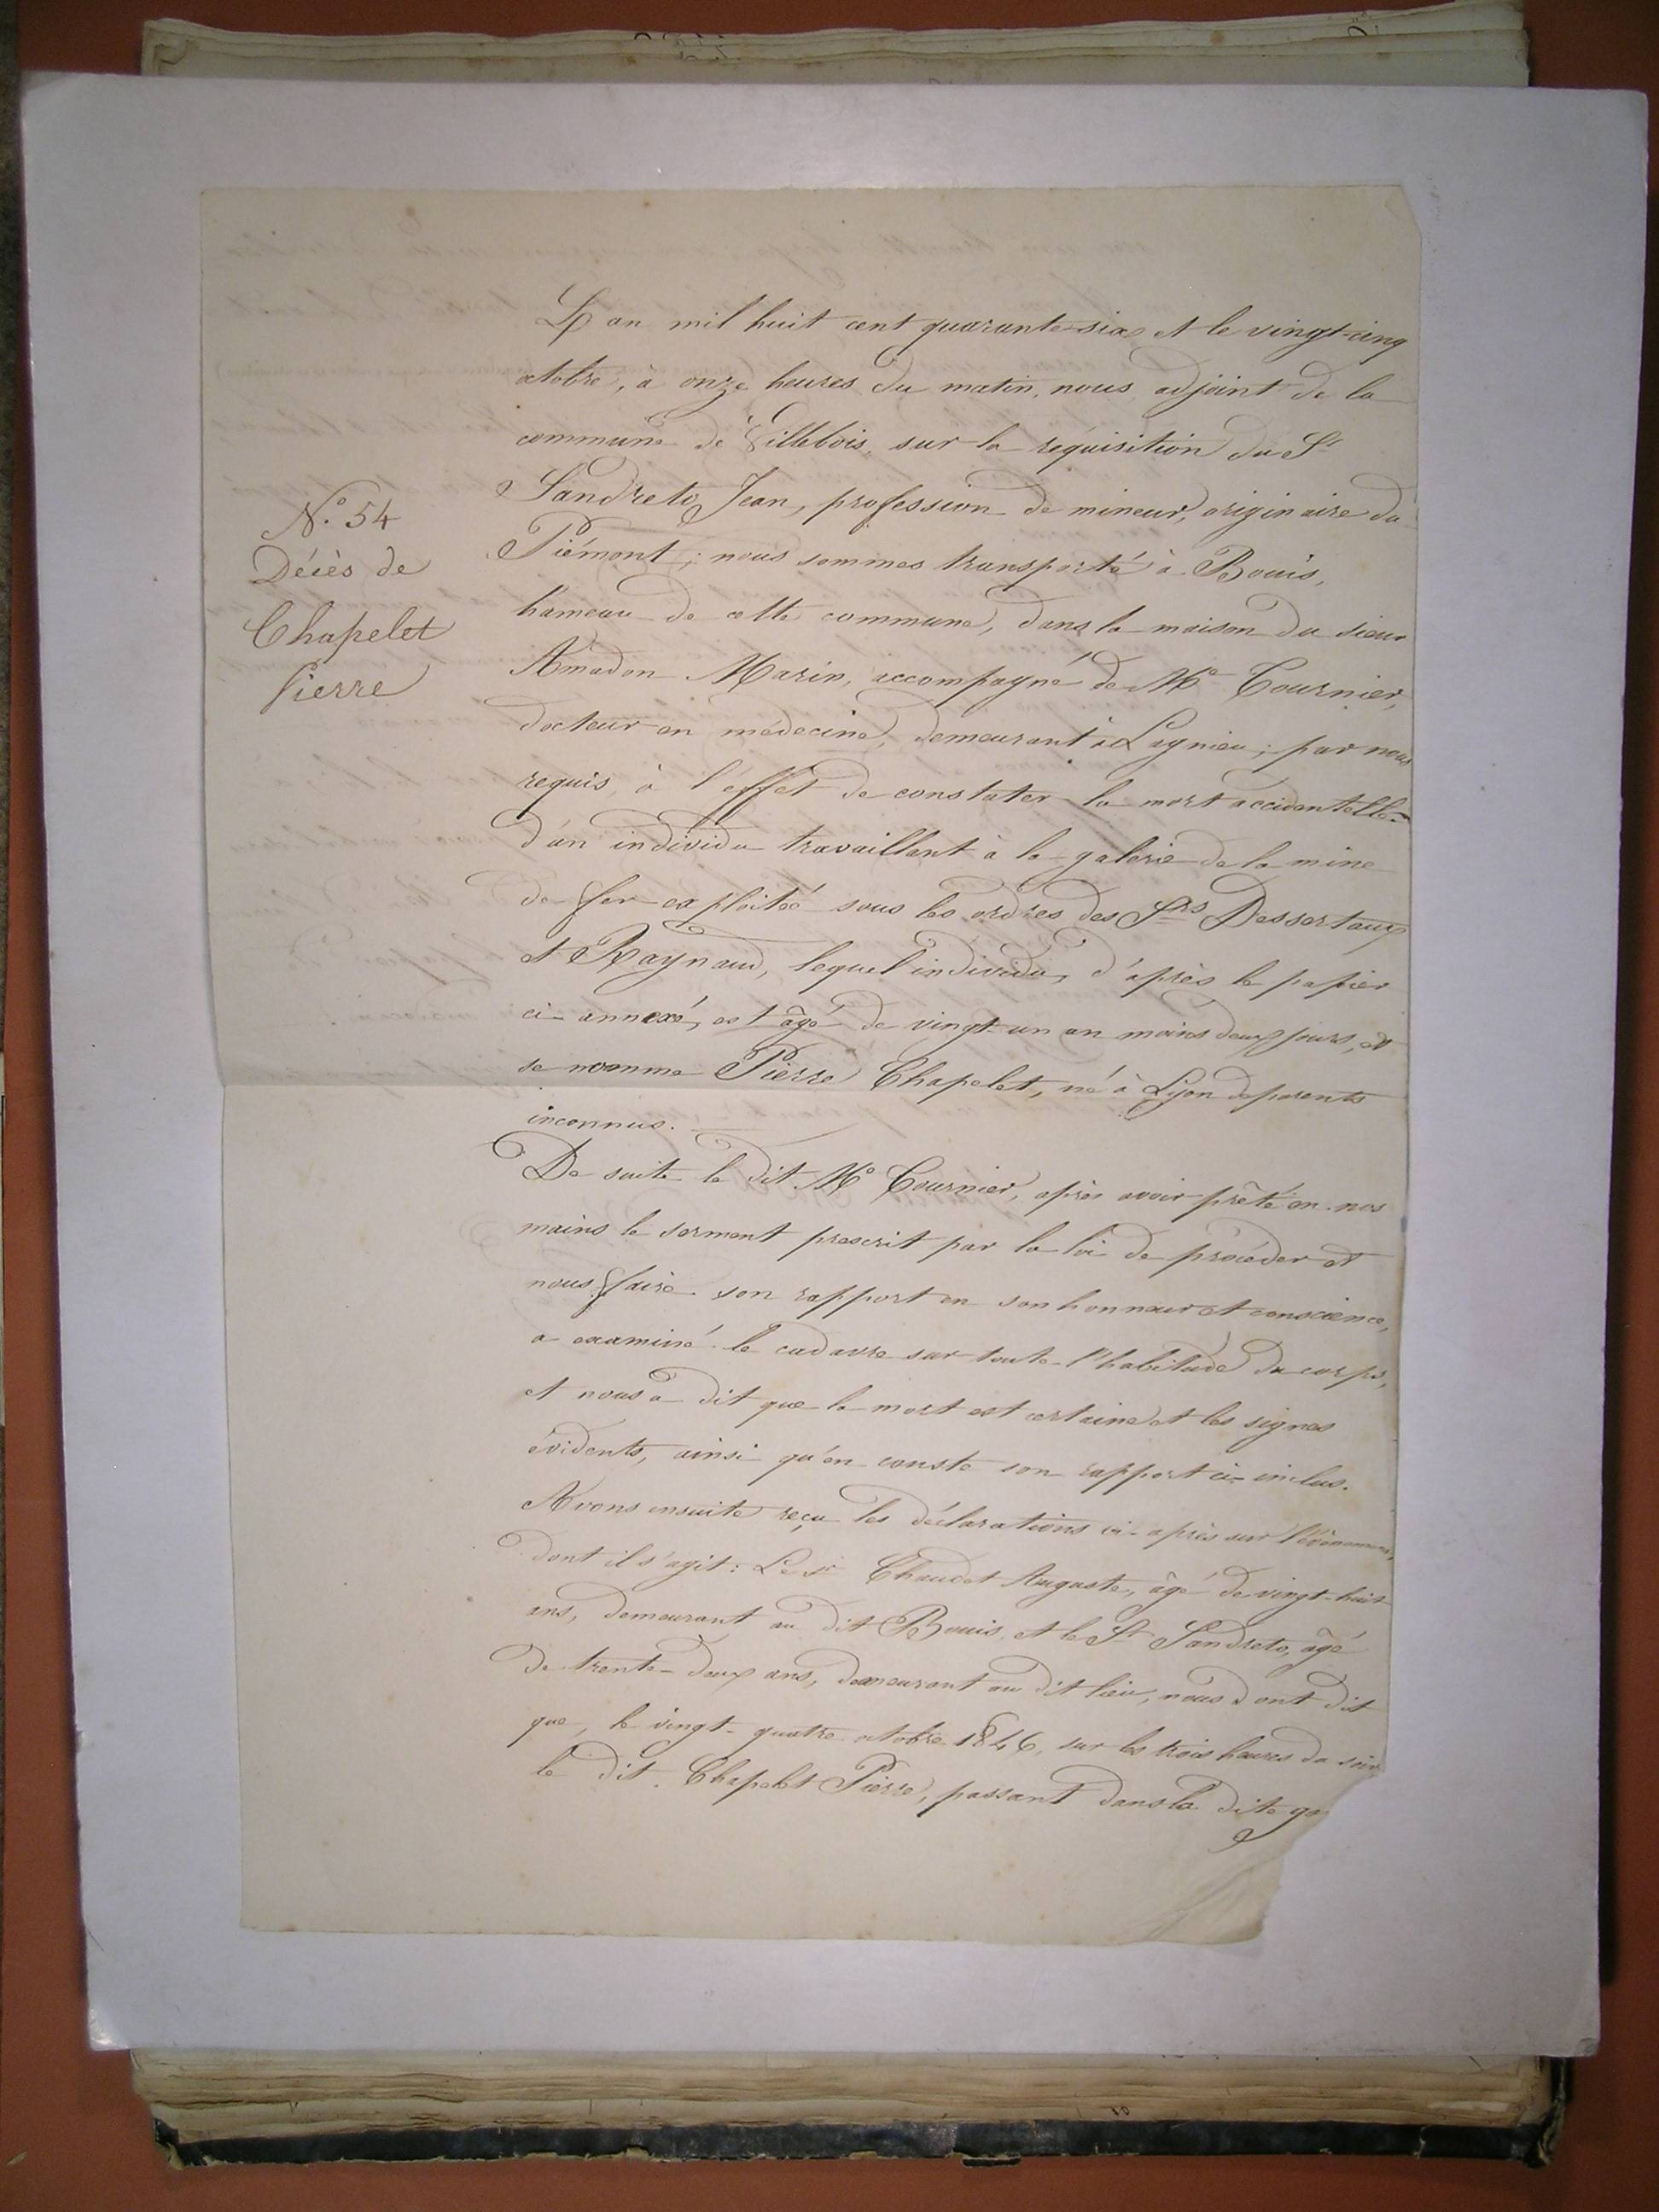 N.° 54
Décès de
Chapelet
Pierre
L'an mil huit cent quarante-six et le vingt-cinq
octobre, à onze heures du matin, nous adjoint de la
commune de Villebois, sur la réquisition du Sr
Sandreto Jean, profession de mineur, originaire du
Piémont; nous sommes transporté à Bouis,
hameau de cette commune, dans la maison du sieur
Amadon Marin, accompagné de Mr Tournier,
docteur en médecine, demeurant à Lagnieu; par nous
requis, à l'effet de constater la mort accidentelle
d'un individu travaillant à la galerie de la mine
de fer exploitée sous les ordres des Srs Dessertaux
et Raynaud, lequel individu, d'après le papier
ci-annexé, est âgé de vingt-un an moins deux jours, et
se nomme Pierre Chapelet, né à Lyon de parents
inconnus.
De suite le dit Mr Tournier, après avoir prêté en nos
mains le serment prescrit par la loi de procéder et
nous faire son rapport en son honneur et conscience,
a examiné le cadavre sur toute l'habitude du corps,
et nous a dit que la mort est certaine et les signes
évidents, ainsi qu'en conste son rapport ci-inclus.
Avons ensuite reçu les déclarations ci-après sur l'évènement
dont il s'agit: Le sr Chaudet Auguste, âgé de vingt-huit
ans, demeurant au dit Bouis et le Sr Sandreto, âgé
de trente-deux ans, demeurant au dit lieu, nous ont dit
que, le vingt-quatre octobre 1846, sur les trois heures du soir
le dit Chapelet Pierre, passant dans la dite ga